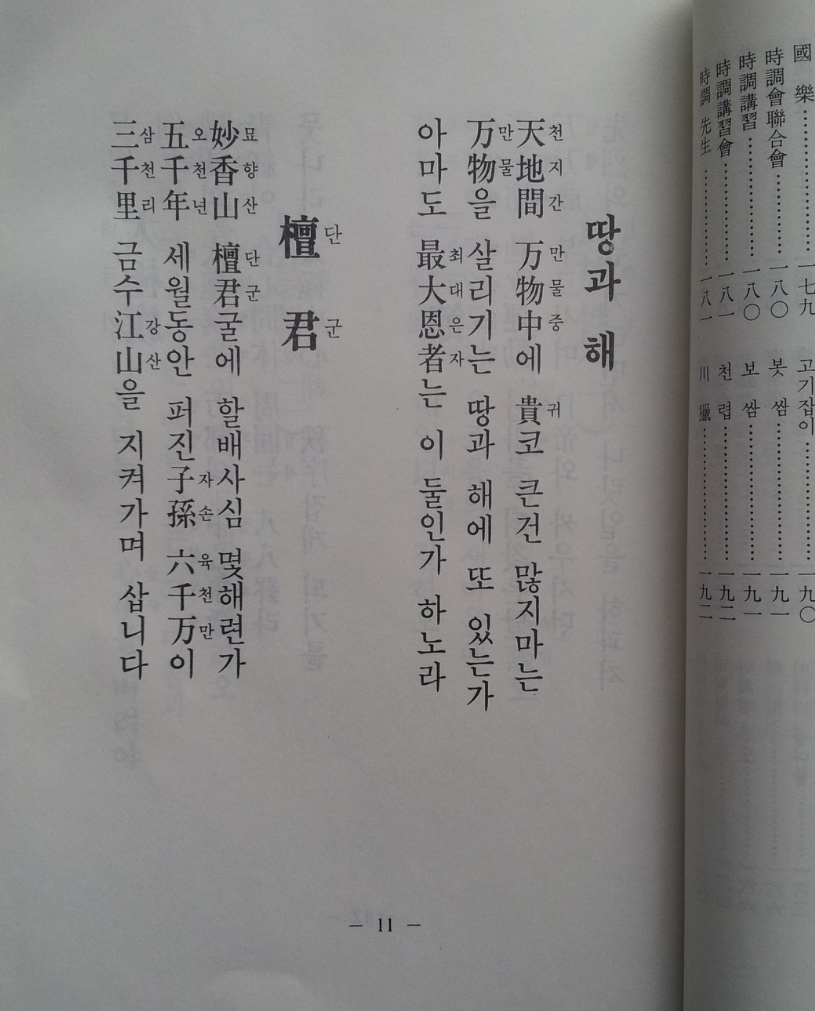 國樂……………一七九
時調會聯合會……………一八〇
時調講習……………一八〇
時調講習會……………一八一
時調先生……………一八一
고기잡이……………一九〇
봇쌈……………一九一
보쌈……………一九一
천렵……………一九二
川獵……………一九二
땅과 해
천지간 만물중 귀
天地間 万物中에 貴코 큰건 많지마는
만물
万物을 살리기는 땅과 해에 또 있는가
최대은자
아마도 最大恩者는 이 둘인가 하노라
단군
檀君
묘향산 단군
妙香山 檀君굴에 할배사심 몇해련가
오천년 자손 육천만
五千年 세월동안 퍼진子孫 六千万이
삼천리 강산
三千里 금수江山을 지켜가며 삽니다
— 11 —